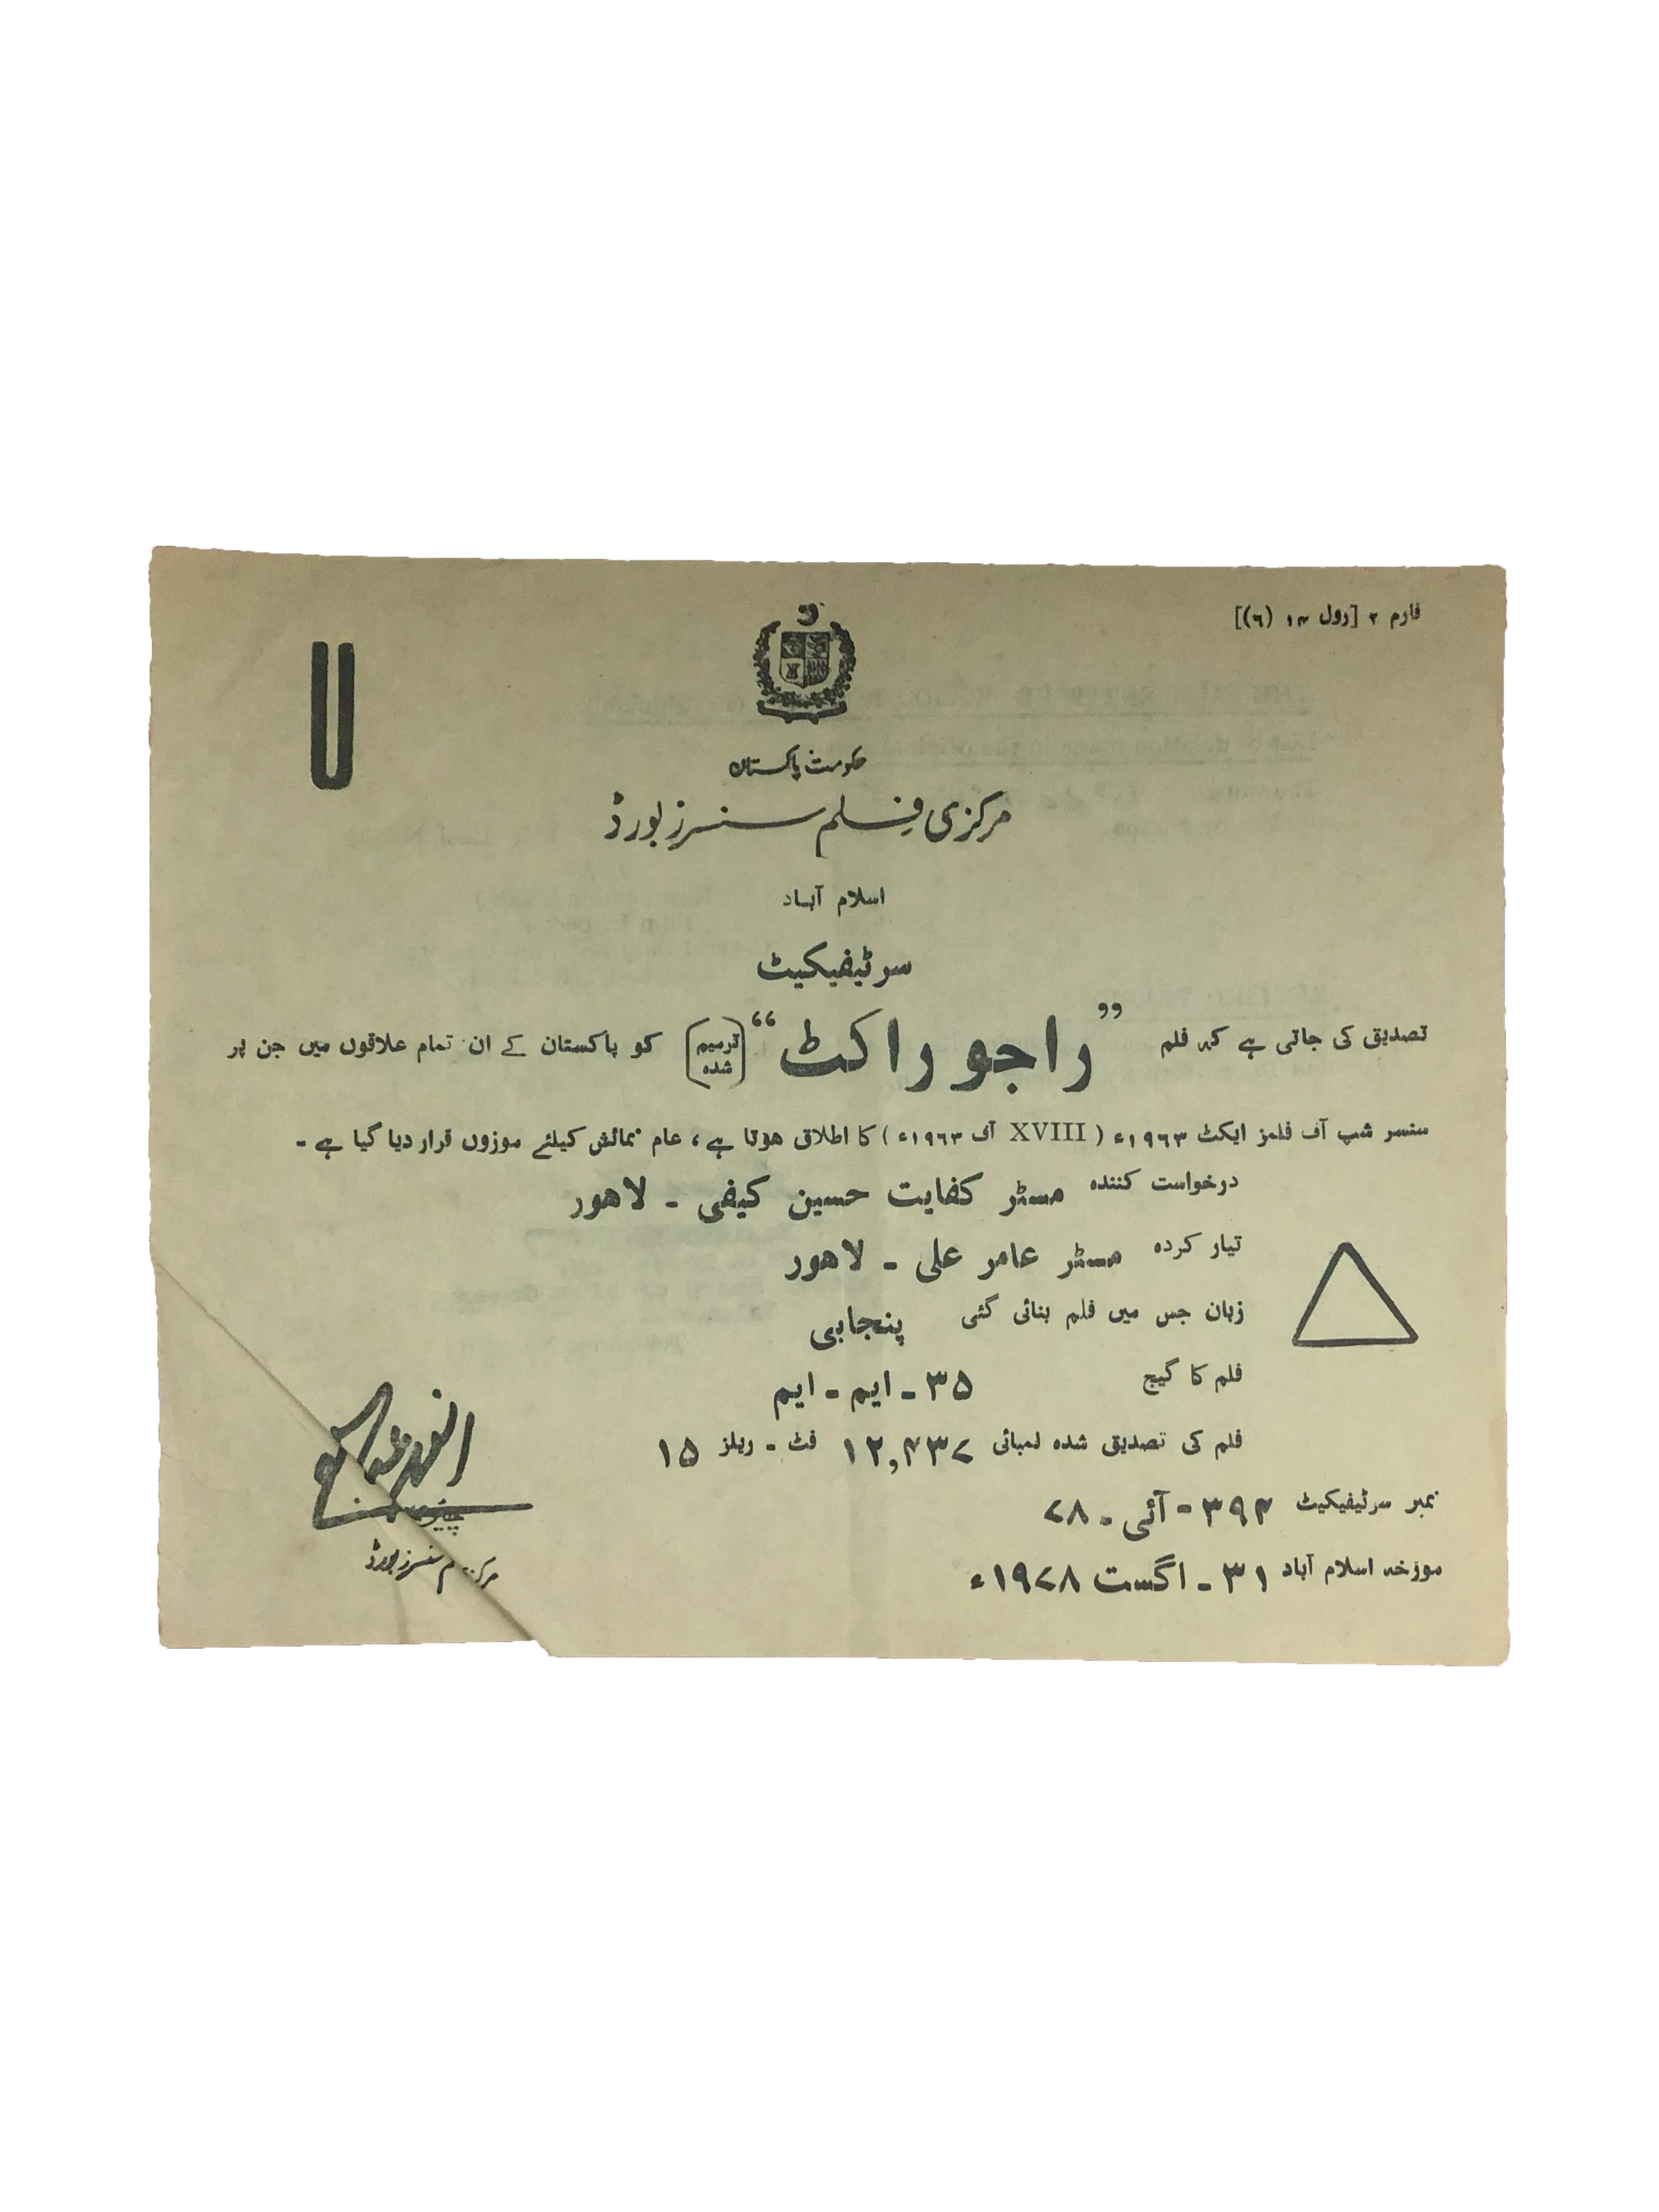 فارم ۲ [رول ۱۴ (٦)]
U
حکومت پاکستان
مرکزی فلم سنسرز بورڈ
اسلام آباد
سرٹیفیکیٹ
تصدیق کی جاتی ہے کہ فلم ”راجو راکٹ“ (ترمیم شدہ) کو پاکستان کے ان تمام علاقوں میں جن پر
سنسر شپ آف فلمز ایکٹ ۱۹٦۳ء ( XVIII آف ۱۹٦۳ء ) کا اطلاق ہوتا ہے ، عام نمائش کیلئے موزوں قرار دیا گیا ہے ۔
درخواست کنندہ مسٹر کفایت حسین کیفی ۔ لاہور
تیار کردہ مسٹر عامر علی ۔ لاہور
زبان جس میں فلم بنائی گئی پنجابی
فلم کا گیج ۳۵ ۔ ایم ۔ ایم
فلم کی تصدیق شدہ لمبائی ۱۲,۴۳۷ فٹ ۔ ریلز ۱۵
نمبر سرٹیفیکیٹ ۳۹۴ - آئی ۔ ۷۸
مورخہ اسلام آباد ۳۱ ۔ اگست ۱۹۷۸ء
سنسرز بورڈ